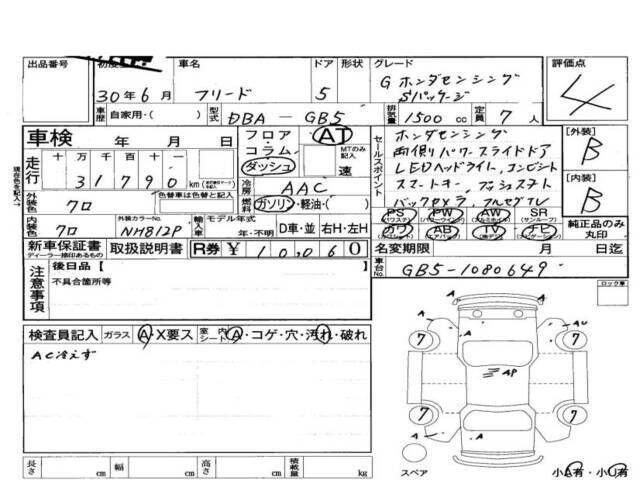 出品番号 初度 車名 ドア 形状 グレード 評価点
30年6月 フリード 5 G ホンダセンシング
Sパッケージ
4
車歴 自家用・( ) 型式 DBA-GB5 排気量 1500cc 定員 7人
車検 年 月 日
フロア・コラム ダッシュ AT MTのみ記入 速
走行 十 万 千 百 十
31790 km
冷房 AAC
外装色 クロ 色替車は色替と記入
燃料 ガソリン・軽油・( )
内装色 クロ 外装カラーNo. NH812P 輸入車 モデル年式 年・不明 D車・並 右H・左H
新車保証書 ディーラー捺印あるもの 取扱説明書 R券 ¥10,060
セールスポイント
ホンダセンシング
両側パワースライドドア
LEDヘッドライト,コンビシート
スマートキー,プッシュスタート
バックカメラ,フルセグTV
PS PW AW SR
カワ AB TV ナビ
[外装] B
[内装] B
純正品のみ丸印
名変期限 月 日迄
車台No. GB5-1080649
注意事項 後日品【 】
不具合箇所等
ロック車
検査員記入 ガラス A・X要ス 室内シート A・コゲ・穴・汚れ・破れ
AC冷えず
A A AU
7 7
AP
7 7
A A A
長さ cm 幅 cm 高さ cm 積載量 kg
スペア 小A有・小U有